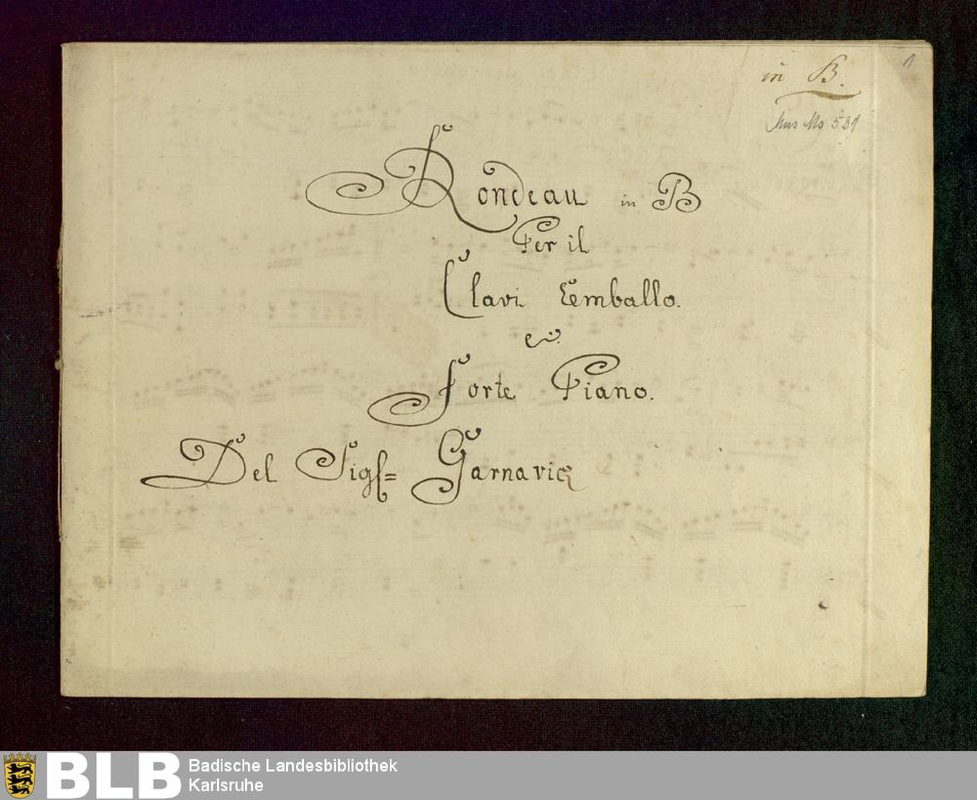 in B.
1
Mus Ms 591
Rondeau in B
Per il
Clavi Cemballo.
e
Forte Piano.
Del Sigl= Garnavick
BLB Badische Landesbibliothek
Karlsruhe